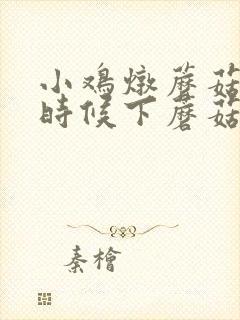 小鸡燉蘑菇
時候下蘑菇
秦檜